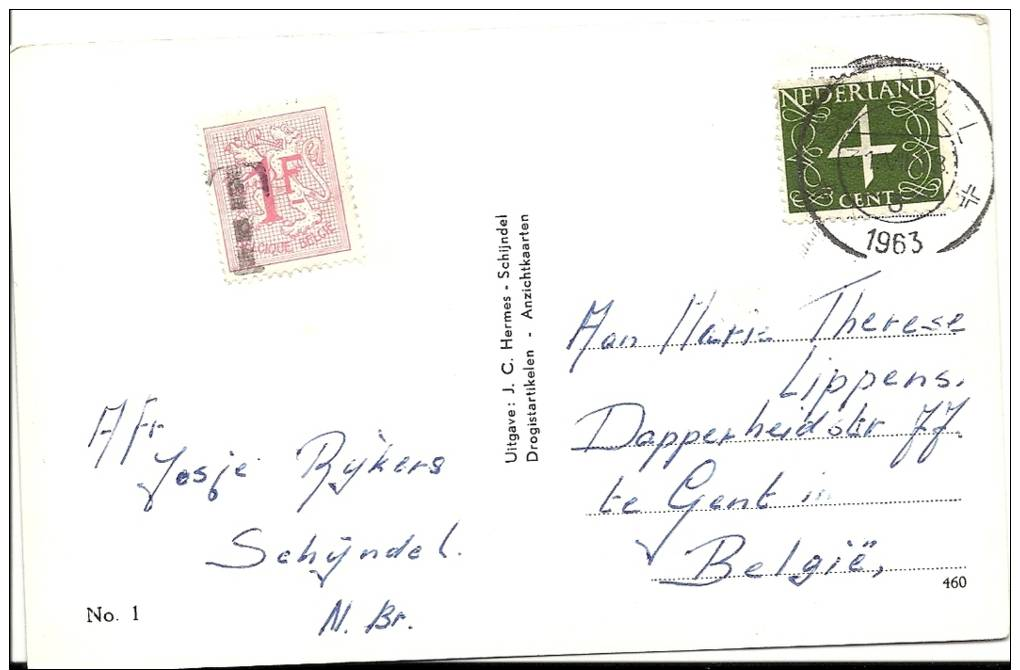 NEDERLAND
4
CENT
1963
1F
BELGIQUE-BELGIE
Uitgave: J. C. Hermes - Schijndel
Drogistartikelen - Anzichtkaarten
Aan Maria Therese
Lippens.
Dapperheidstr 77.
te Gent in
België,
460
Afr
Josje Rijkers
Schijndel.
N. Br.
No. 1